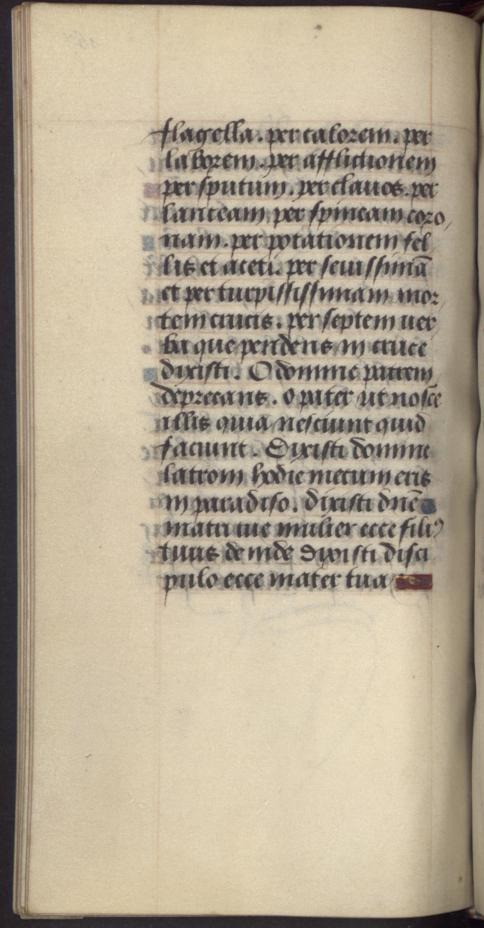 flagella. per calorem. per
laborem. per afflictionem
per sputum. per clauos. per
lanceam. per spineam coro
nam. per potationem fel
lis et aceti. per seuissimā
et per turpississimam mor
tem crucis. per septem uer
ba que pendens in cruce
dixisti. O domine patrem
deprecans. o pater ut nosce
illis quia nesciunt quid
faciunt. Dixisti domine
latroni hodie mecum eris
in paradiso. dixisti dnē
matri tue mulier ecce filiꝰ
tuus deinde dixisti disci
pulo ecce mater tua